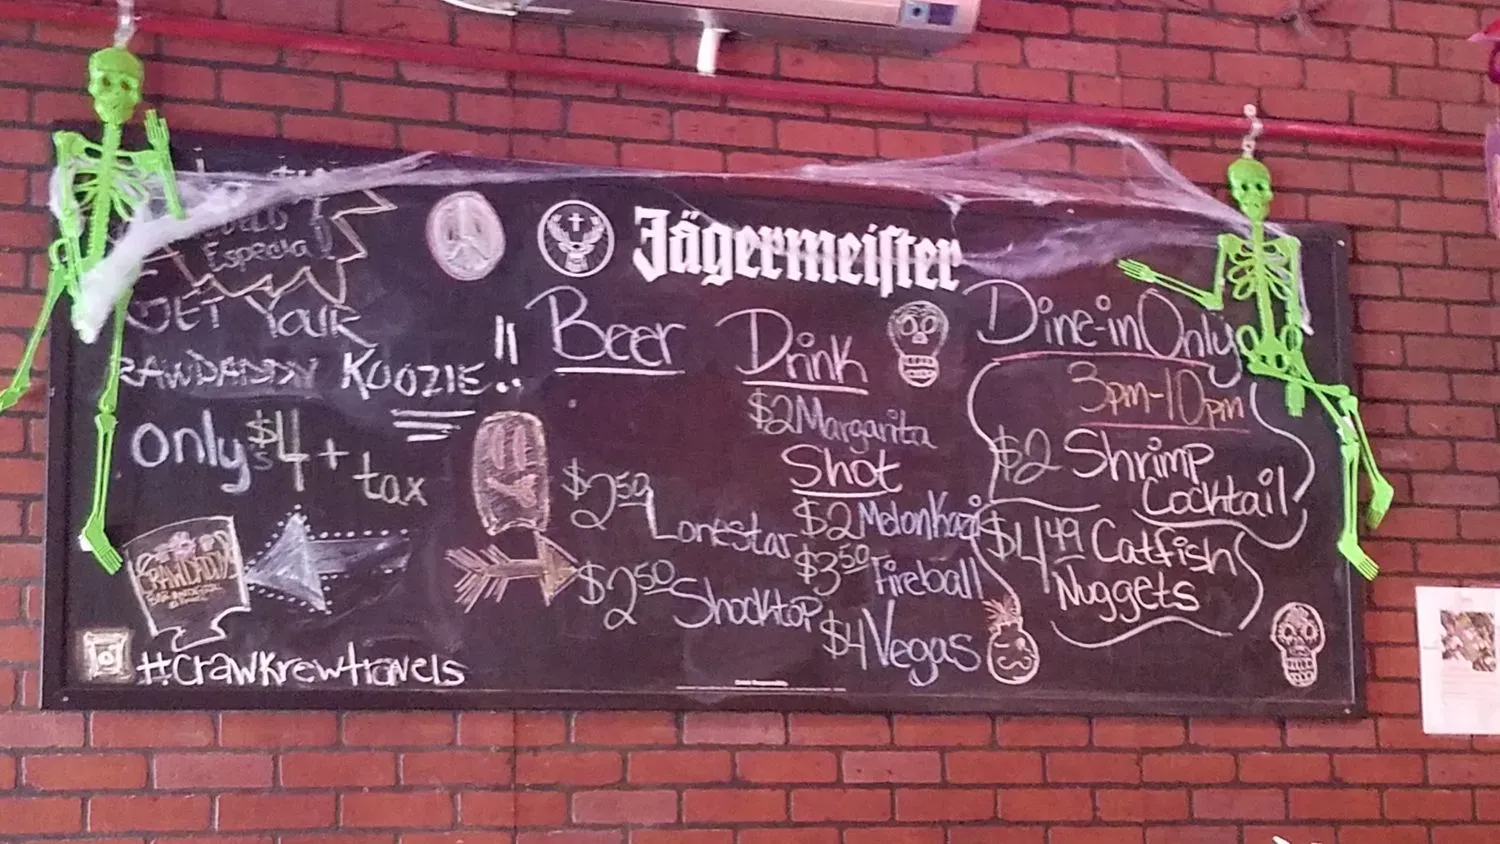 Especial
GET YOUR
RAWDADDY KOOZIE!!
only $4 + tax
CRAWDADDY'S
#crawkrewtravels
Jägermeister
Beer
$2.50 Lonestar
$2.50 Shocktop
Drink
$2 Margarita
Shot
$2 Melonkazi
$3.50 Fireball
$4 Vegas
Dine-in Only
3pm-10pm
$2 Shrimp
Cocktail
$4.49 Catfish
Nuggets